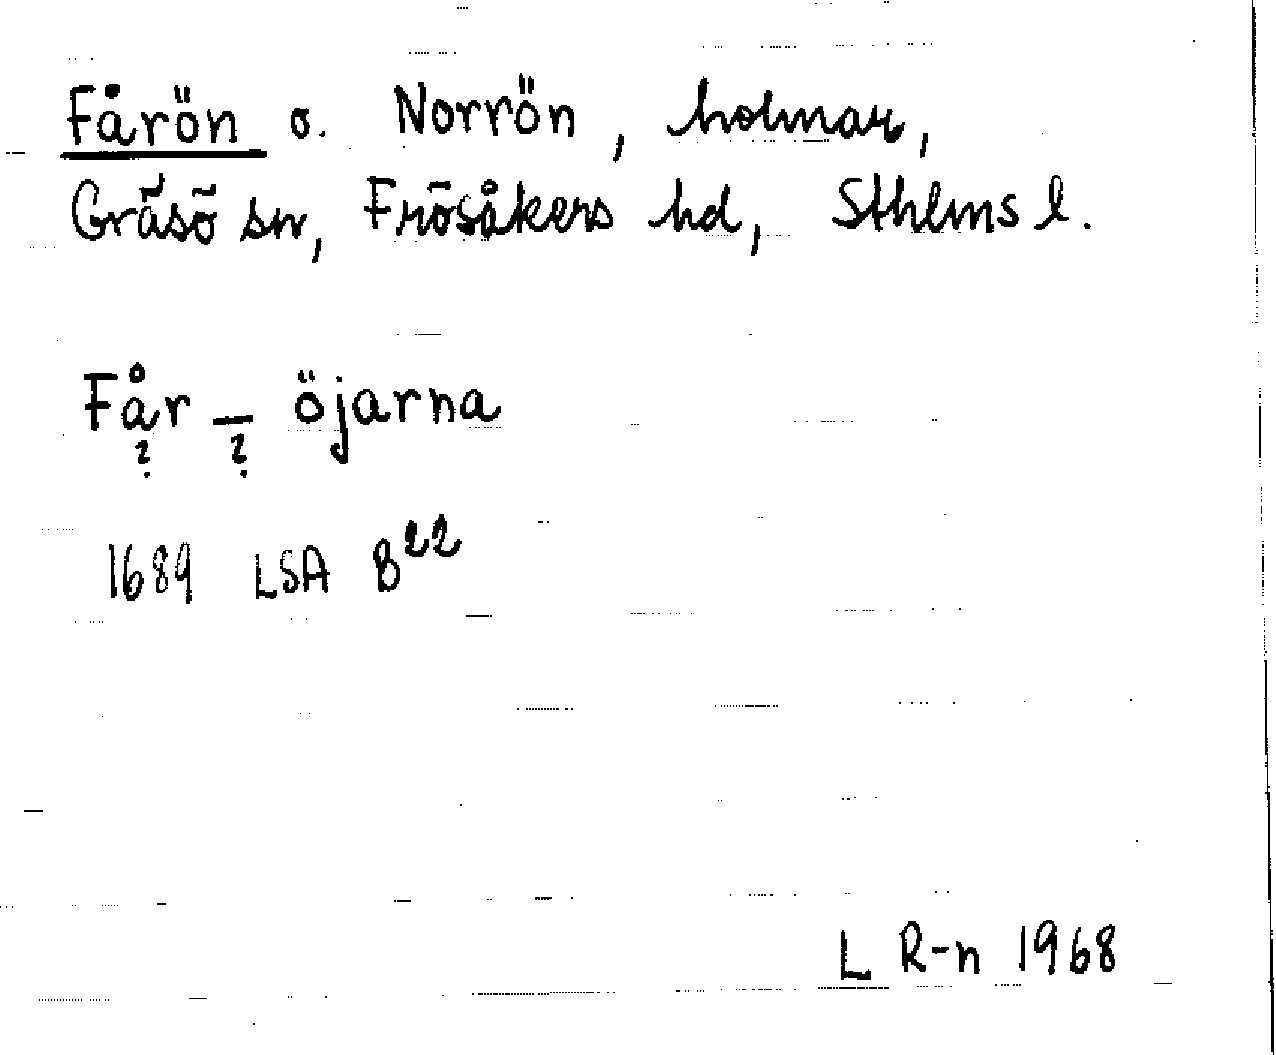 Fårön o. Norrön, holmar,
Gräsö sn, Frösåkers hd, Sthlms l.
Får - öjarna
? ?
1689 LSA B²²
L R-n 1968